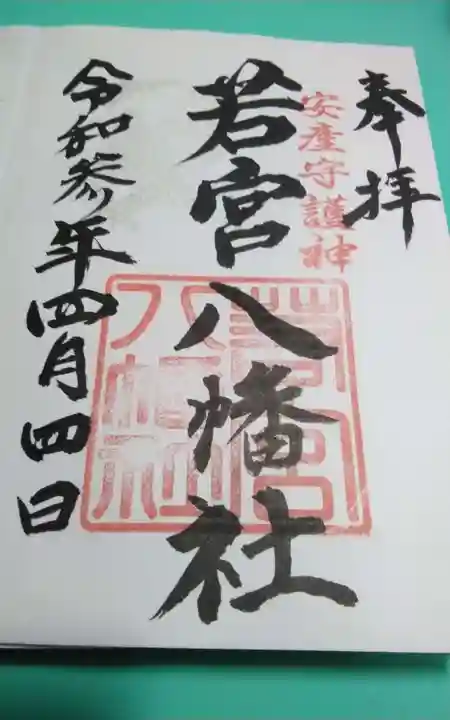 奉拝
安産守護神
若宮八幡社
若宮
八幡社
令和参年四月四日